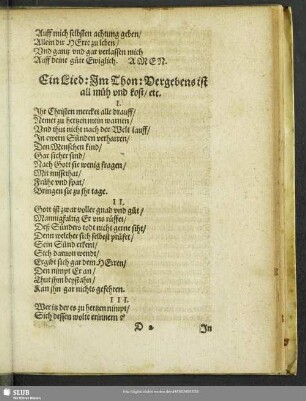 Auff mich selbsten achtung geben/
Allein dir HErre zu leben/
Vnd gantz vnd gar verlassen mich
Auff deine güte Ewiglich. AMEN.
Ein Lied: Im Thon: Vergebens ist
all müh vnd kost/ etc.
I.
Ihr Christen mercket alle drauff/
Nemet zu hertzen mein warnen/
Vnd thut nicht nach der Welt lauff/
In ewern Sünden verharren/
Den Menschen sind/
Gar sicher sind/
Nach Gott sie wenig fragen/
Mit missethat/
Frühe vnd spat/
Bringen sie zu ihr tage.
II.
Gott ist zwar voller gnad vnd güt/
Mannigfaltig Er vns rüffet/
Deß Sünders todt nicht gerne siht/
Denn welcher sich selbest prüfet/
Sein Sünd erkent/
Sich daruon wendt/
Ergibt sich gar dem HErren/
Den nimpt Er an/
Thut ihm beystahn/
Kan ihn gar nichts gefehren.
III.
Wer ist der es zu hertzen nimpt/
Sich dessen wolte erinnern?
D
In
SLUB
Wir führen Wissen.